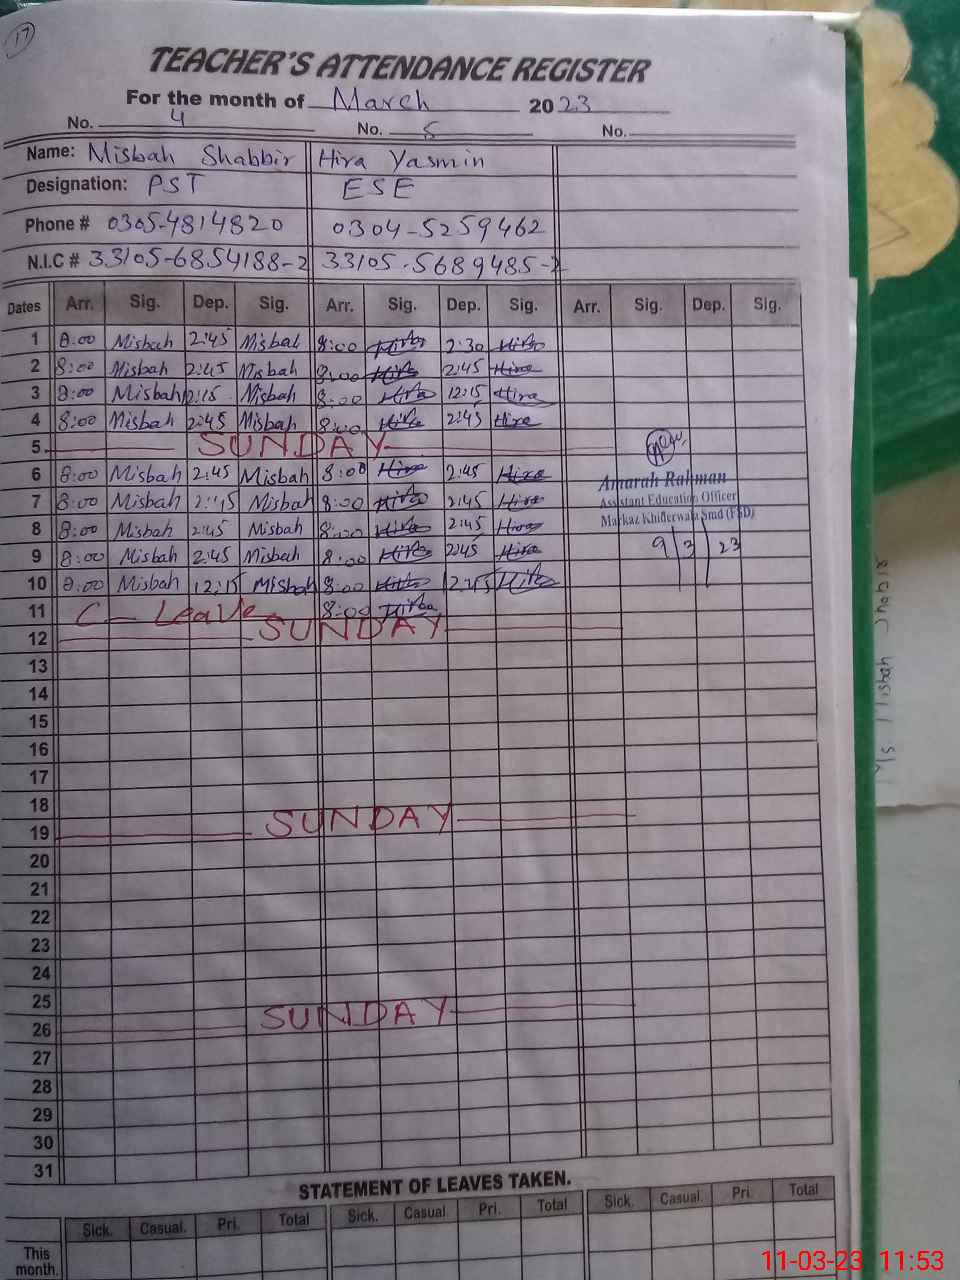 17
TEACHER'S ATTENDANCE REGISTER
For the month of March 2023
No. 4 No. 5 No.
Name: Misbah Shabbir Hira Yasmin
Designation: PST ESE
Phone # 0305-4814820 0304-5259462
N.I.C # 33105-6854188-2 33105-5689485-2
Dates Arr. Sig. Dep. Sig. Arr. Sig. Dep. Sig. Arr. Sig. Dep. Sig.
1 8:00 Misbah 2:45 Misbah 8:00 Hira 2:30 Hira
2 8:00 Misbah 2:45 Misbah 8:00 Hira 2:45 Hira
3 8:00 Misbah 12:15 Misbah 8:00 Hira 12:15 Hira
4 8:00 Misbah 2:45 Misbah 8:00 Hira 2:45 Hira
5 SUNDAY
6 8:00 Misbah 2:45 Misbah 8:00 Hira 2:45 Hira
Amarah Rahman
7 8:00 Misbah 2:45 Misbah 8:00 Hira 2:45 Hira
Assistant Education Officer
8 8:00 Misbah 2:45 Misbah 8:00 Hira 2:45 Hira
Markaz Khiderwala Smd (FSD)
9 8:00 Misbah 2:45 Misbah 8:00 Hira 2:45 Hira
9/3/23
10 8:00 Misbah 12:15 Misbah 8:00 Hira Hira
11 C - Leave 8:00 Hira
12 SUNDAY
13
14
15
16
17
18
19 SUNDAY
20
21
22
23
24
25
26 SUNDAY
27
28
29
30
31
STATEMENT OF LEAVES TAKEN.
Sick. Casual. Pri. Total Sick. Casual Pri. Total Sick. Casual. Pri. Total
This
month.
Misbah Shabir
11-03-23 11:53